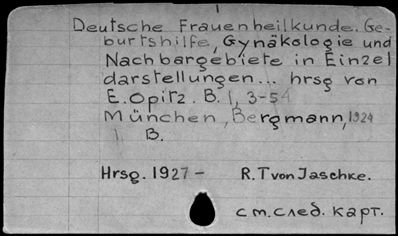 Deutsche Frauenheilkunde. Ge-
burtshilfe, Gynäkologie und
Nachbargebiete in Einzel
darstellungen... hrsg von
E. Opitz. B. 1, 3-5
München, Bergmann, 1924
B.
Hrsg. 1927 - R. T von Jaschke.
см. след. карт.